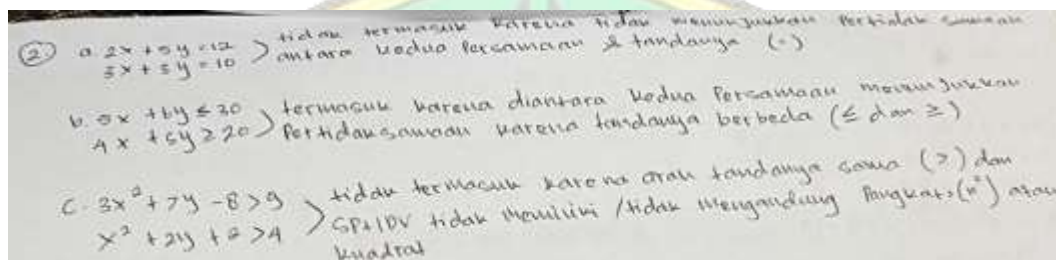 ② a. 2x + 5y = 12 tidak termasuk karena tidak menunjukkan pertidak samaan
3x + 5y = 10 antara kedua persamaan & tandanya (=)
b. 5x + 6y ≤ 30 termasuk karena diantara kedua persamaan menunjukkan
4x + 5y ≥ 20 pertidaksamaan karena tandanya berbeda (≤ dan ≥)
c. 3x² + 7y - 8 > 9 tidak termasuk karena arah tandanya sama (>) dan
x² + 2y + 2 > 4 SPtIDV tidak memiliki / tidak mengandung pangkat² (n²) atau
kuadrat